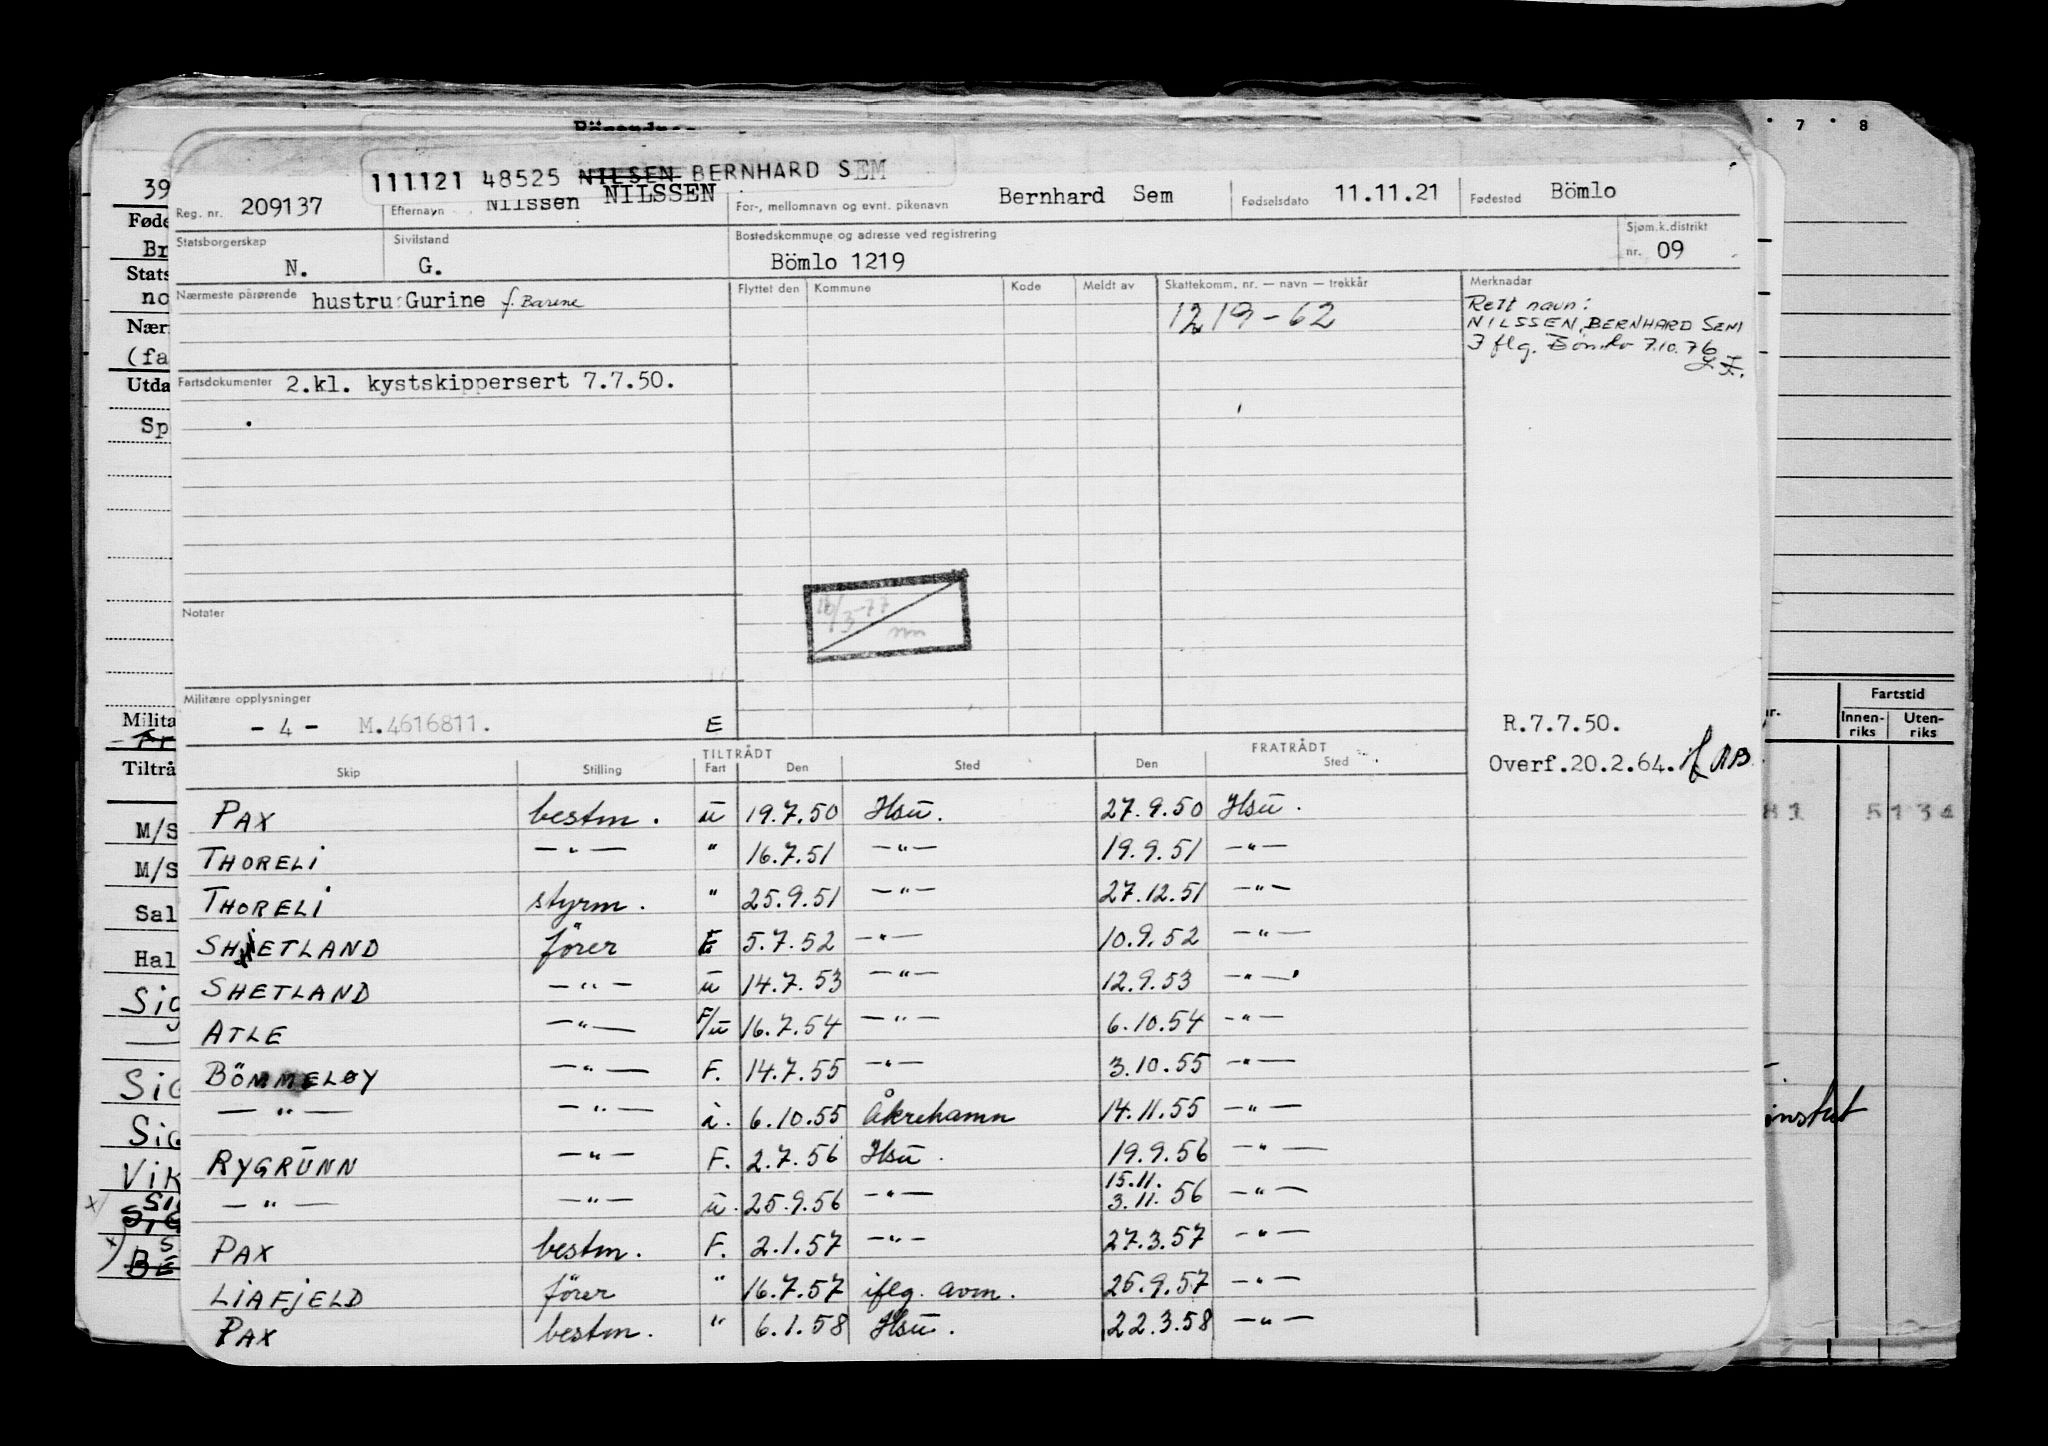 111121 48525 NILSEN BERNHARD SEM
Reg. nr. 209137 Efternavn Nilssen NILSSEN For-, mellomnavn og evnt. pikenavn Bernhard Sem Fødselsdato 11.11.21 Fødested Bömlo
Statsborgerskap N. Sivilstand G. Bostedskommune og adresse ved registrering Bömlo 1219 Sjøm.k.distrikt nr. 09
Nærmeste pårørende hustru Gurine f. Barene Flyttet den Kommune Kode Meldt av Skattekomm. nr. — navn — trekkår Merknader
1219-62
Rett navn:
NILSSEN, BERNHARD SEM
I flg. Bömlo 7.10.76
Fartsdokumenter 2.kl. kystskippersert 7.7.50.
16/3-77
Notater
Militære opplysninger
- 4 - M.4616811. E
R.7.7.50.
Overf.20.2.64.
TILTRÅDT FRATRÅDT
Skip Stilling Fart Den Sted Den Sted
PAX bestm. u 19.7.50 Hsu. 27.9.50 Hsu.
THORELI —"— " 16.7.51 —"— 19.9.51 —"—
THORELI styrm. " 25.9.51 —"— 27.12.51 —"—
SHETLAND fører E 5.7.52 —"— 10.9.52 —"—
SHETLAND —"— u 14.7.53 —"— 12.9.53 —"—
ATLE —"— F/u 16.7.54 —"— 6.10.54 —"—
BÖMMELØY —"— F. 14.7.55 —"— 3.10.55 —"—
—"— —"— i. 6.10.55 Åkrehamn 14.11.55 —"—
RYGRUNN —"— F. 2.7.56 Hsu. 19.9.56 —"—
15.11.
—"— —"— u. 25.9.56 —"— 3.11.56 —"—
PAX bestm. F. 2.1.57 —"— 27.3.57 —"—
LIAFJELD fører " 16.7.57 iflg. avm. 25.9.57 —"—
PAX bestm. " 6.1.58 Hsu. 22.3.58 —"—
39
Føde
Br
Stats
no
Nær
(fa
Utda
Sp
Milita
Tiltrå
M/S
M/S
Sal
Hal
Sig
Sig
Sig
Vik
7 8
Fartstid
Innen-riks Uten-riks
81 5134